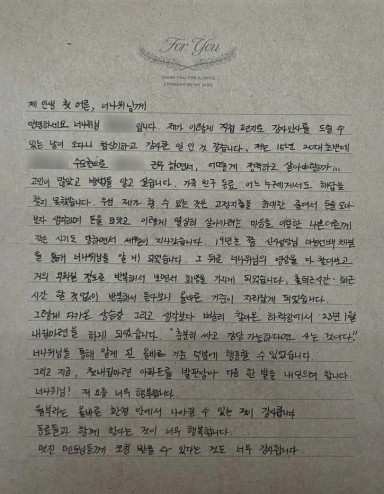 For You
THANK YOU FOR ALWAYS
STANDING BY MY SIDE
제 인생 첫 어른, 너나위님께
안녕하세요 너나위님 입니다. 제가 이렇게 직접 편지로 감사인사를 드릴 수
있는 날이 오다니 감사한 일인 것 같습니다. 저는 15년 20대 초반에
근무하면서, 어떻게 살아야할까
고민이 많았고 방법을 알고 싶습니다. 가족 친구 동료 어느 누구에게서도 해답을
찾지 못했습니다. 우선 제가 할 수 있는 것은 고정지출을 최대한 줄여서 돈을 모아
보자 생각하여 돈을 모았고 이렇게 열심히 살아가려는 마음을 이용한 나쁜어른에게
지나갔습니다. 19년초 쯤
을 통해 너나위님을 알게 되었습니다. 그 뒤로 너나위님의 영상을 다 찾아보고
거의 정도로 반복해서 보면서 희망을 가지게 되었습니다. 출퇴근시간
시간 할 것 없이 반복해서 듣다보니 올바른 기준이 자리잡게 되었습니다.
그렇게 지나간 상승장 그리고 생각보다 빠르게 찾아온 하락장에서 23년 1월
내집마련을 하게 되었습니다. "충분히 싸고 감당 가능하다면 사는 것이다."
너나위님을 통해 알게 된 올바른 기준 덕분에 행동할 수 있었습니다.
그리고 지금, 첫내집마련 아파트를 발판삼아 다음 한 발을 내딛으려 합니다.
너나위님! 저 요즘 너무 행복합니다.
올바른 환경 안에서 나아갈 수 있는 것이 감사합니다
동료들과 함께 한다는 것이 너무 행복합니다.
멋진 멘토님들께 코칭 받을 수 있다는 것도 너무 감사합니다.